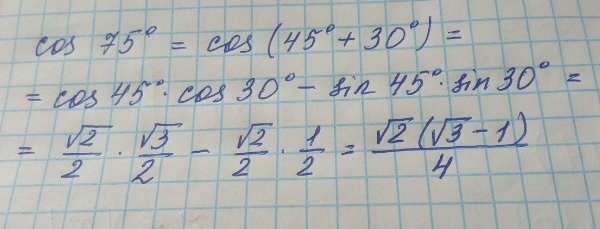 cos 75° = cos (45° + 30°) =
= cos 45° · cos 30° − sin 45° · sin 30° =
= √2/2 · √3/2 − √2/2 · 1/2 = √2 (√3 − 1)/4